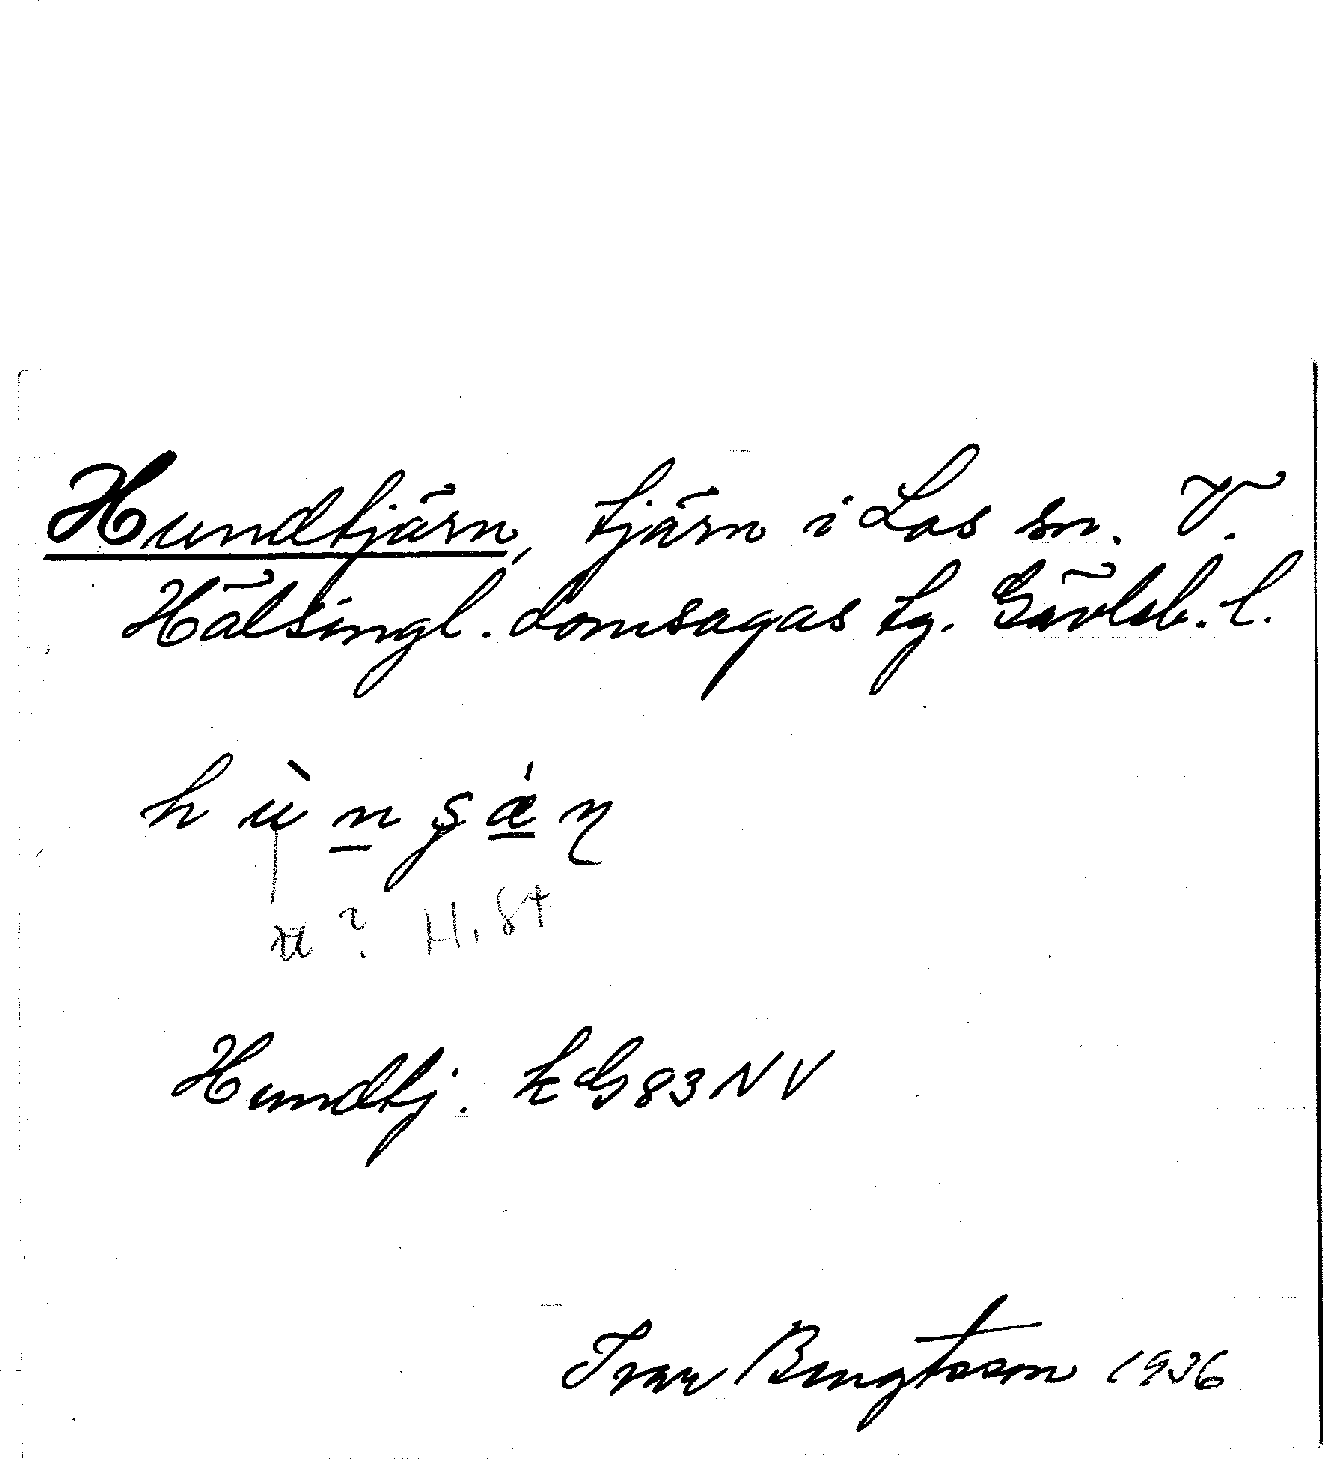 Hundtjärn, tjärn i Los sn. V.
Hälsingl. domsagas tg. Gävleb. l.
h ù n ş ǽ η
u? H. St
Hundtj. kG83NV
Ivar Bengtsson 1936